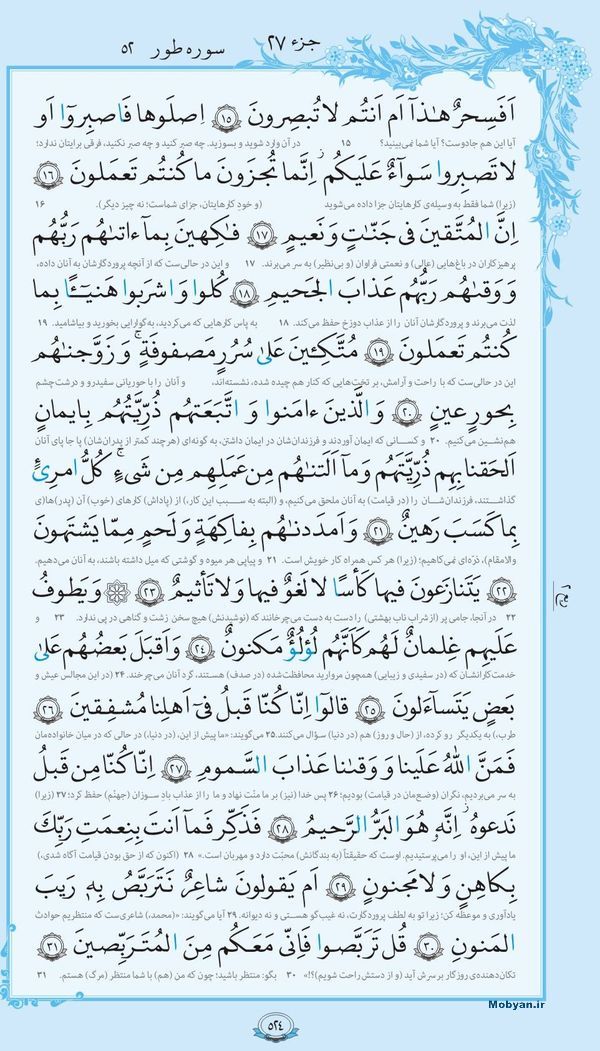 جزء ۲۷
سوره طور
۵۲
اَفَسِحرٌ هٰذَآ اَم اَنتُم لا تُبصِرونَ ﴿۱۵﴾ اِصلَوها فَاصبِروٓا اَو
آیا این هم جادوست؟ آیا شما نمی‌بینید؟ ۱۵ در آن وارد شوید و بسوزید. چه صبر کنید و چه صبر نکنید، فرقی برایتان ندارد؛
لا تَصبِروا سَوآءٌ عَلَیکُم اِنَّما تُجزَونَ ما کُنتُم تَعمَلونَ ﴿۱۶﴾
(زیرا) شما فقط به وسیله‌ی کارهایتان جزا داده می‌شوید (و خودِ کارهایتان، جزای شماست؛ نه چیز دیگر). ۱۶
اِنَّ المُتَّقینَ فی جَنّاتٍ وَ نَعیمٍ ﴿۱۷﴾ فاکِهینَ بِمآ ءاتاهُم رَبُّهُم
پرهیزکاران در باغ‌هایی (عالی) و نعمتی فراوان (و بی‌نظیر) به سر می‌برند. ۱۷ و این در حالی‌ست که از آنچه پروردگارشان به آنان داده،
وَ وَقاهُم رَبُّهُم عَذابَ الجَحیمِ ﴿۱۸﴾ کُلوا وَ اشرَبوا هَنیٓـًٔا بِما
لذت می‌برند و پروردگارشان آنان را از عذاب دوزخ حفظ می‌کند. ۱۸ به پاس کارهایی که می‌کردید، به‌گوارایی بخورید و بیاشامید. ۱۹
کُنتُم تَعمَلونَ ﴿۱۹﴾ مُتَّکِـٔینَ عَلیٰ سُرُرٍ مَصفوفَةٍ ۖ وَ زَوَّجناهُم
این در حالی‌ست که با راحت و آرامش، بر تخت‌هایی که کنار هم چیده شده، نشسته‌اند، و آنان را با حوریانی سفیدرو و درشت‌چشم
بِحورٍ عینٍ ﴿۲۰﴾ وَ الَّذینَ ءامَنوا وَ اتَّبَعَتهُم ذُرِّیَّتُهُم بِایمانٍ
هم‌نشین می‌کنیم. ۲۰ و کسانی که ایمان آوردند و فرزندان‌شان در ایمان داشتن، به گونه‌ای (هرچند کمتر از پدران‌شان) پا جا پای آنان
اَلحَقنا بِهِم ذُرِّیَّتَهُم وَ مآ اَلَتناهُم مِن عَمَلِهِم مِن شَیءٍ ۚ کُلُّ امرِیٍٔ
گذاشتند، فرزندان‌شان را (در قیامت) به آنان ملحق می‌کنیم، و (البته به سبب این کار،) از (پاداش) کارهای (خوب) آن (پدر)ها(ی
بِما کَسَبَ رَهینٌ ﴿۲۱﴾ وَ اَمدَدناهُم بِفاکِهَةٍ وَ لَحمٍ مِمّا یَشتَهونَ
والامقام)، ذرّه‌ای نمی‌کاهیم؛ (زیرا) هر کس همراه کار خویش است. ۲۱ و پیاپی هر میوه و گوشتی که میل داشته باشند، به آنان می‌دهیم.
﴿۲۲﴾ یَتَنازَعونَ فیها کَأسًا لا لَغوٌ فیها وَ لا تَأثیمٌ ﴿۲۳﴾ ۞ وَ یَطوفُ
۲۲ در آنجا، جامی پر (از شراب ناب بهشتی) را دست به دست می‌چرخانند که (نوشیدنش) هیچ سخن زشت و گناهی در پی ندارد. ۲۳ و
عَلَیهِم غِلمانٌ لَهُم کَاَنَّهُم لُؤلُؤٌ مَکنونٌ ﴿۲۴﴾ وَ اَقبَلَ بَعضُهُم عَلیٰ
خدمت‌کارانشان که (در سفیدی و زیبایی) همچون مروارید محافظت‌شده (در صدف) هستند، گرد آنان می‌چرخند. ۲۴ (در این مجالس عیش و
بَعضٍ یَتَسآءَلونَ ﴿۲۵﴾ قالوٓا اِنّا کُنّا قَبلُ فیٓ اَهلِنا مُشفِقینَ ﴿۲۶﴾
طرب،) به یکدیگر رو کرده، از (حال و روز) هم (در دنیا) سؤال می‌کنند. ۲۵ می‌گویند: «ما پیش از این، (در دنیا،) در حالی که در میان خانواده‌مان
فَمَنَّ اللّٰهُ عَلَینا وَ وَقانا عَذابَ السَّمومِ ﴿۲۷﴾ اِنّا کُنّا مِن قَبلُ
به سر می‌بردیم، نگران (وضع‌مان در قیامت) بودیم؛ ۲۶ پس خدا (نیز) بر ما منّت نهاد و ما را از عذاب بادِ سوزان (جهنّم) حفظ کرد؛ ۲۷ (زیرا)
نَدعوهُ ۖ اِنَّهٗ هُوَ البَرُّ الرَّحیمُ ﴿۲۸﴾ فَذَکِّر فَمآ اَنتَ بِنِعمَتِ رَبِّکَ
ما پیش از این، او را می‌پرستیدیم. اوست که حقیقتاً (به بندگانش) محبّت دارد و مهربان است.» ۲۸ (اکنون که از حق بودن قیامت آگاه شدی،)
بِکاهِنٍ وَ لا مَجنونٍ ﴿۲۹﴾ اَم یَقولونَ شاعِرٌ نَتَرَبَّصُ بِهٖ رَیبَ
یادآوری و موعظه کن؛ زیرا تو به لطف پروردگارت، نه غیب‌گو هستی و نه دیوانه. ۲۹ آیا می‌گویند: «(محمد،) شاعری‌ست که منتظریم حوادث
المَنونِ ﴿۳۰﴾ قُل تَرَبَّصوا فَاِنّی مَعَکُم مِنَ المُتَرَبِّصینَ ﴿۳۱﴾
تکان‌دهنده‌ی روزگار بر سرش آید (و از دستش راحت شویم)؟!» ۳۰ بگو: منتظر باشید؛ چون که من (هم) با شما منتظر (مرگ) هستم. ۳۱
۵۲۴
Mobyan.ir